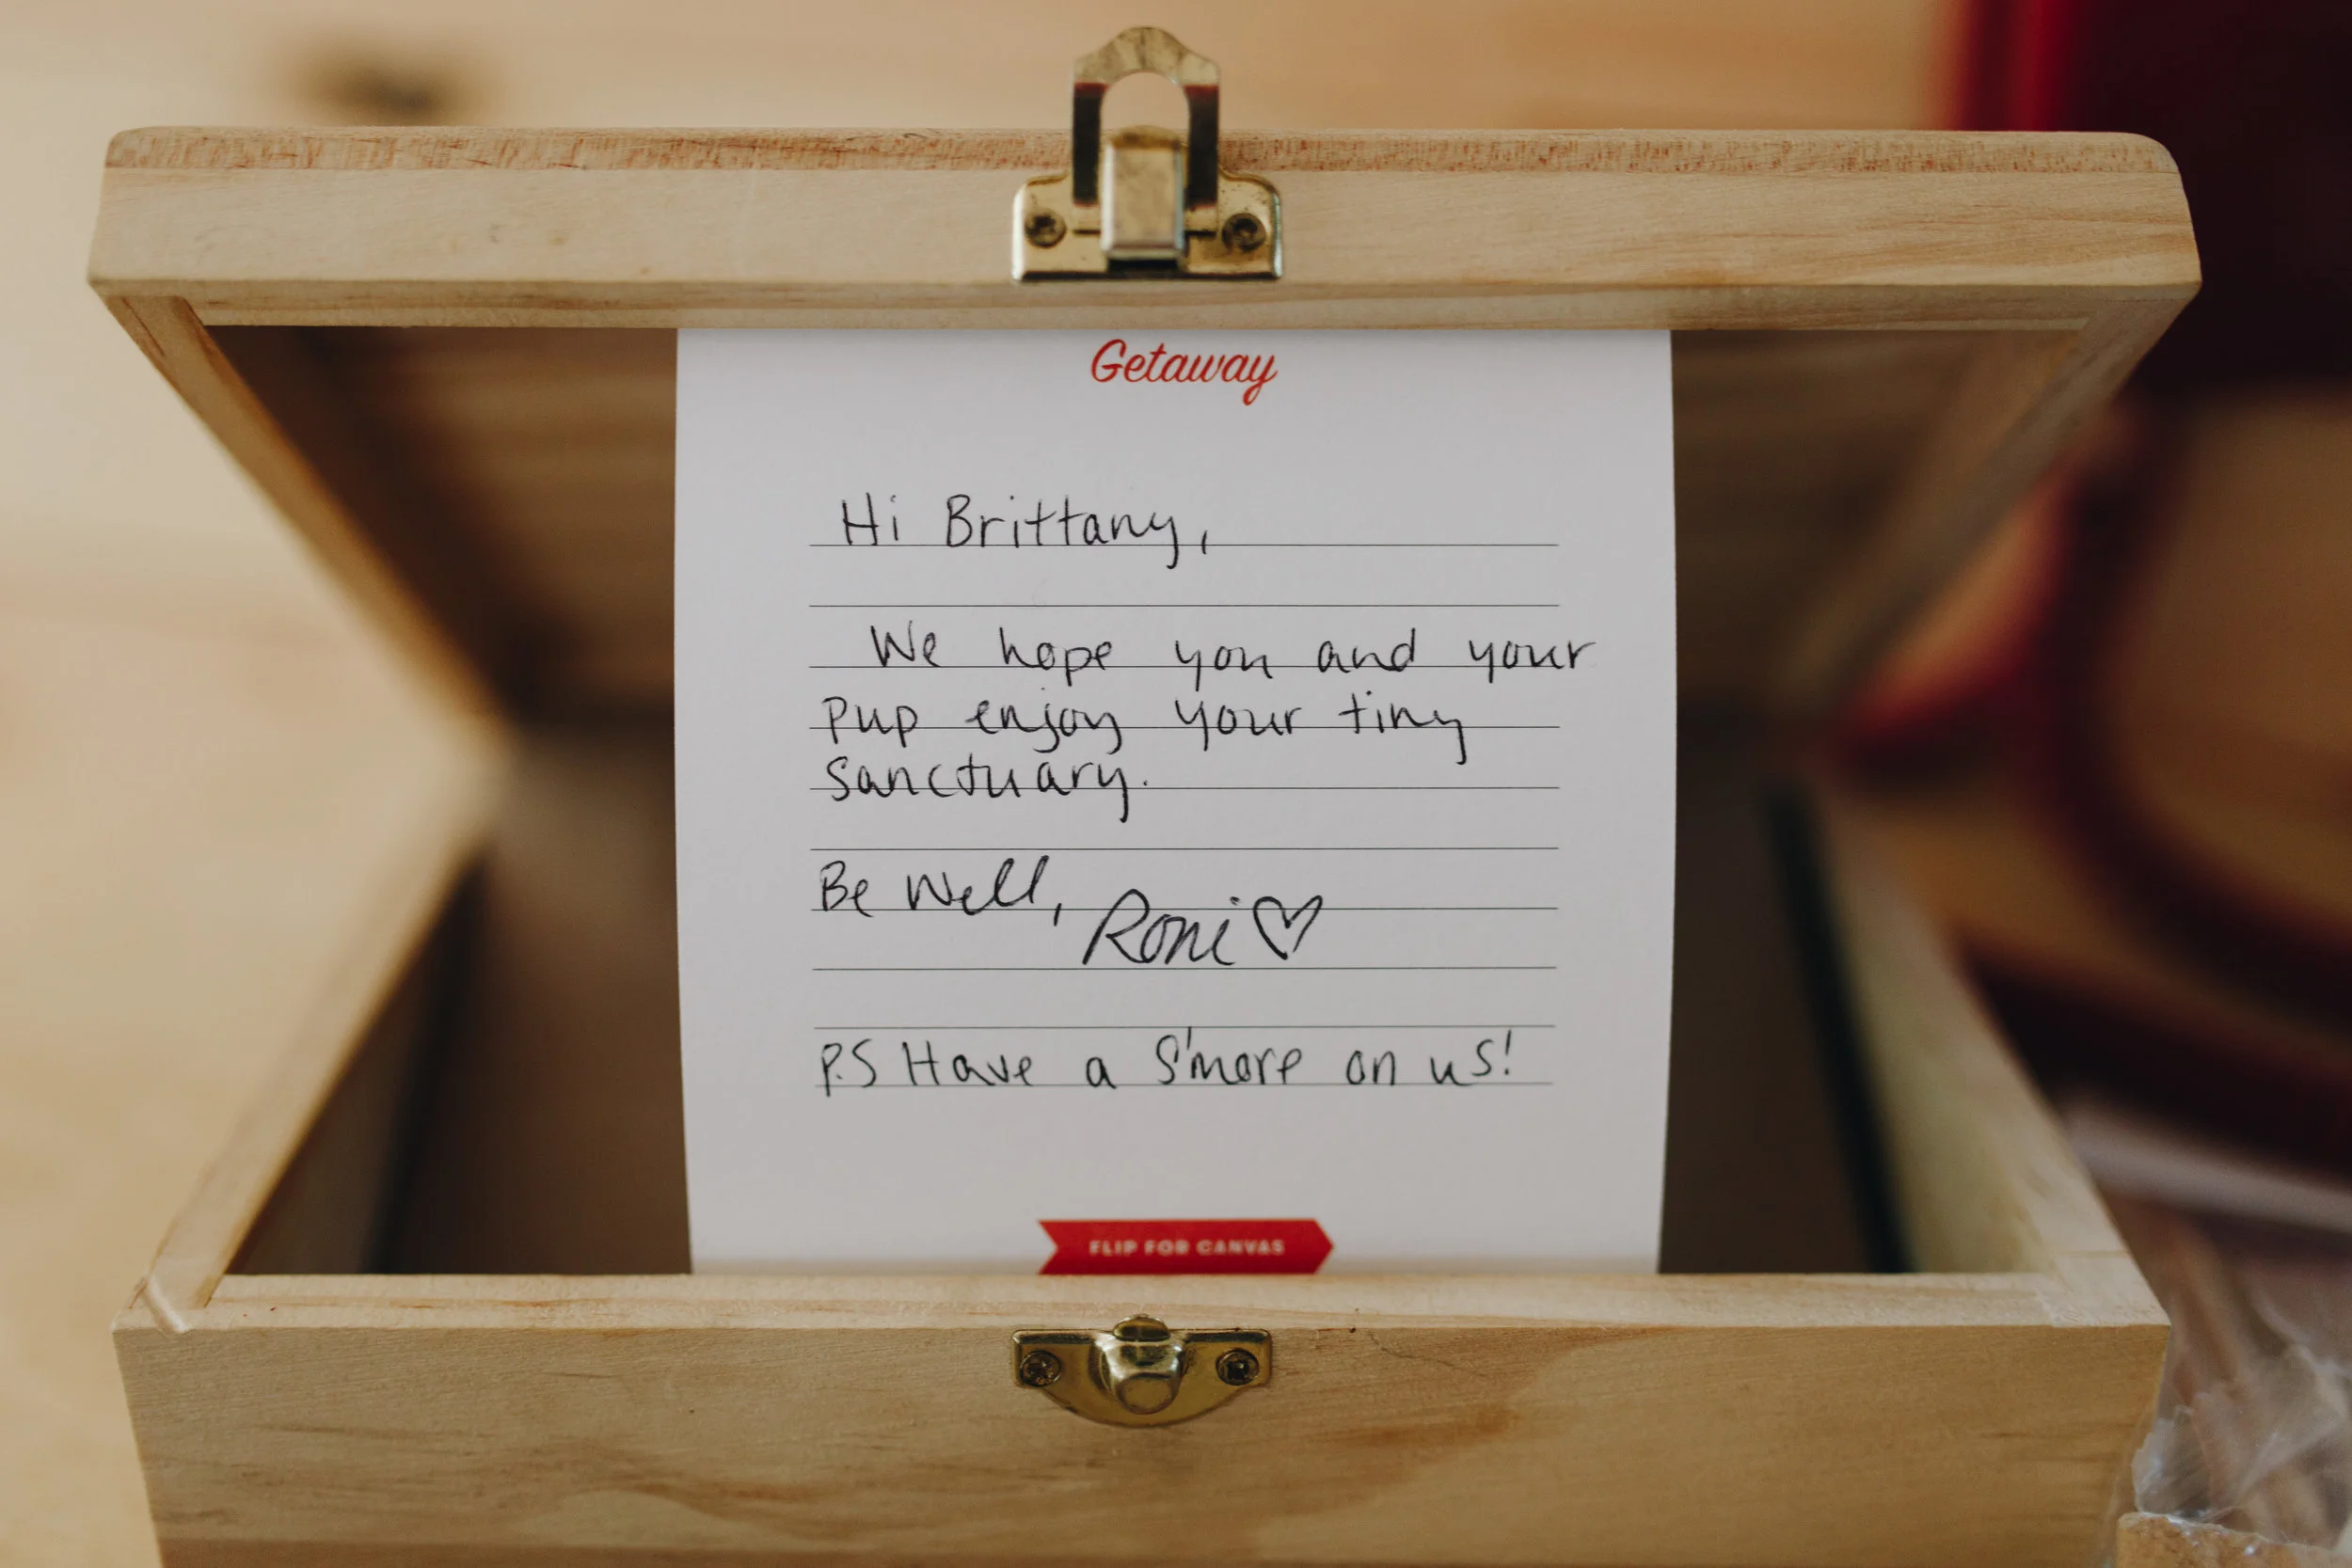 Getaway
Hi Brittany,
We hope you and your
pup enjoy your tiny
Sanctuary.
Be Well,
Roni ♡
P.S Have a S'more on us!
FLIP FOR CANVAS